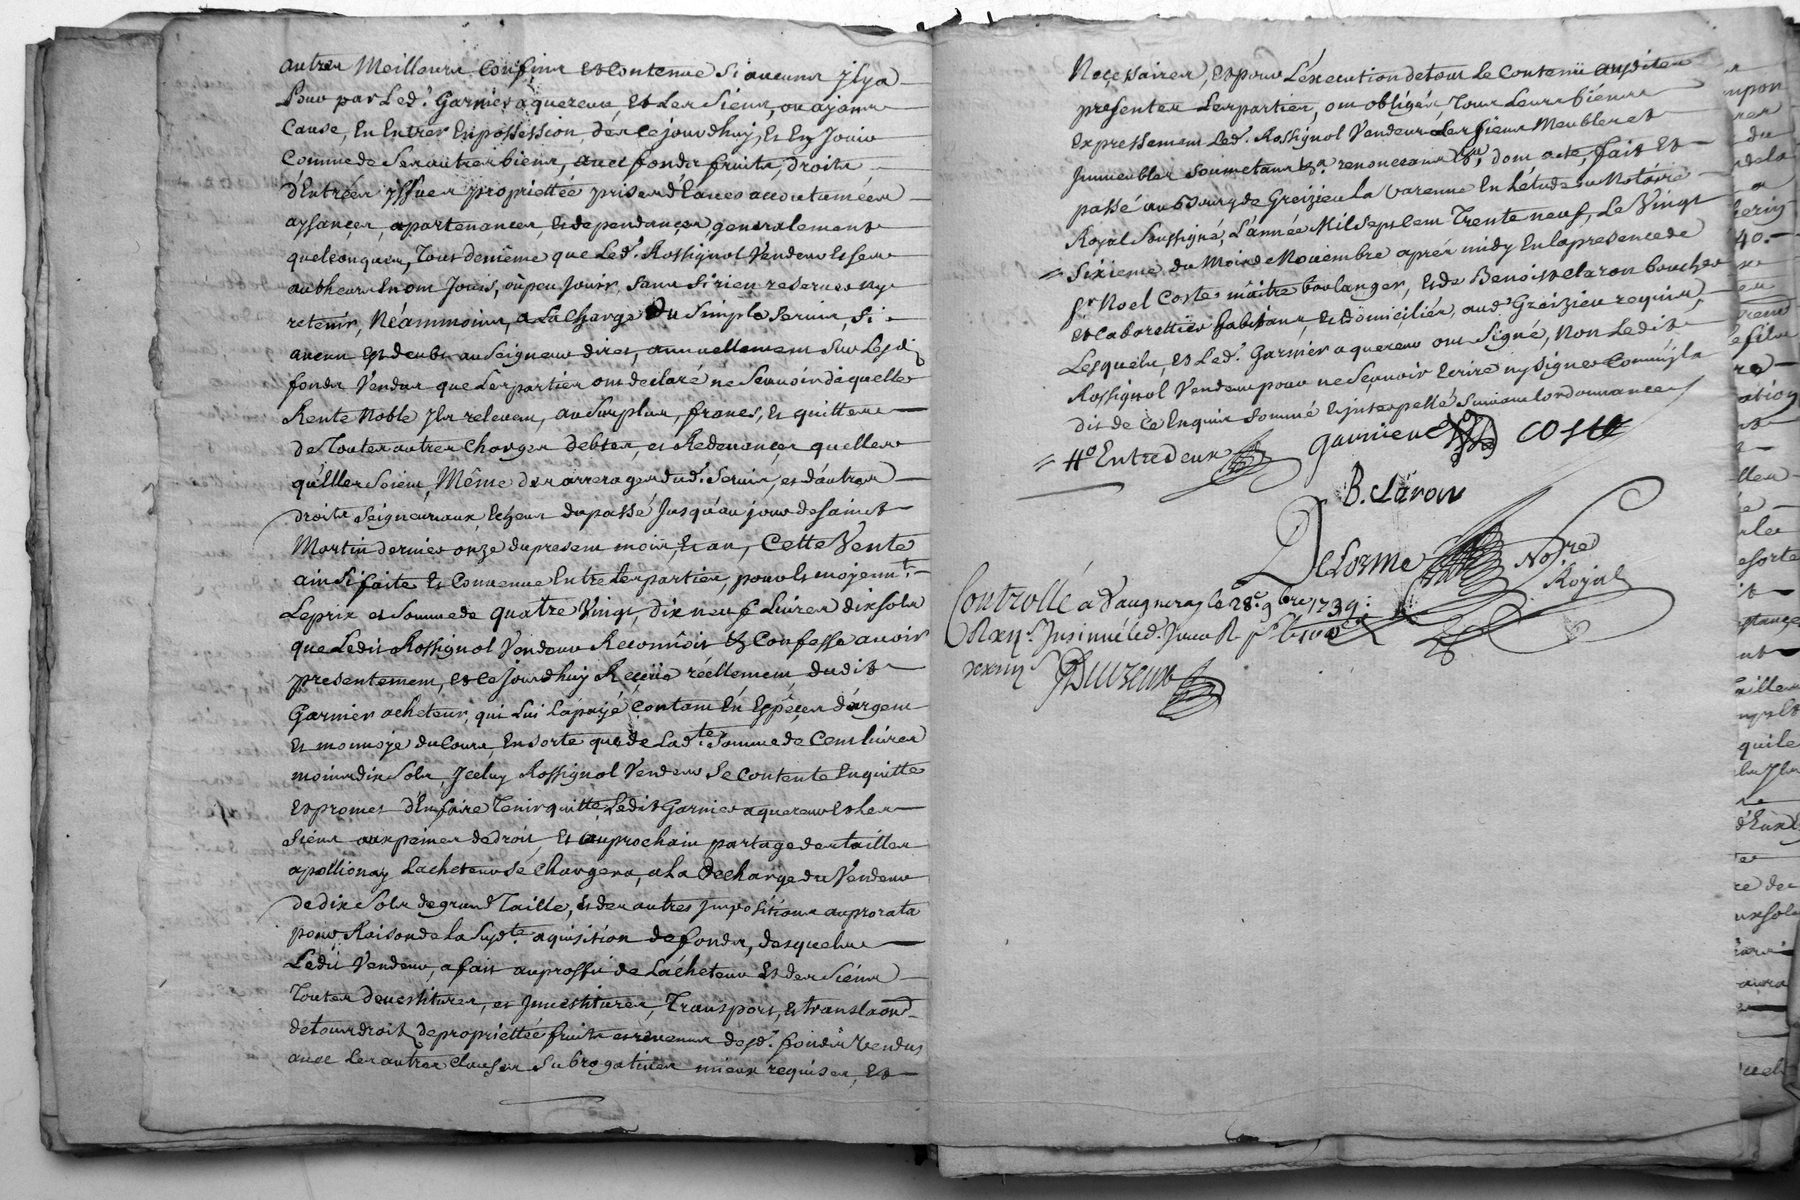 autres Meilleurs Confins et Contenue Si aucuns y l'y a
Pour par Led.t Garnier aquereur, Et Les Siens, ou ayans
Cause, En Entrer En possession dés ce jourd'huy, Et En Jouir
Comme de Ses autres biens, avec fonds fruits, droits
d'Entrées yssues proprietée prises d'Eaues accoutumées
aysances, apartenances, et dependances generalement
quelconques, Tous de même que Led.t Rossignol Vendeur et Ses
autheurs En ont Jouis, où peu Jouir, Sans Si rien reserver ny
retenir, Néammoins, a La Charge du Simple Servis, Si
aucun Est deubt au Seigneur direct, annuellement Sur Lesd.
fonds Vendus que Les parties ont declaré ne Scavoir de quelle
Rente Noble Ils relevent, au Surplus, francs, et quittes
de Toutes autres Charges debtes, et Redevances quelles
qu'Elles Soient, Même des arrerages dud.t Servis, et d'autres
droits Seigneuriaux Echeus du passé Jusqu'au jour de Saint
Martin dernier onze du present mois, Et an, Cette Vente
ainsi faite Et Convenue Entre Les parties, pour Et moyenn.t
Le prix et Somme de quatre Vingt, dix neuf Livres dix sols
que Ledit Rossignol Vendeur Reconnoit Et Confesse avoir
presentement, et ce Jourd'huy Reçüe réellement, dudit
Garnier acheteur, qui Lui La payé Contant En Espèces d'argent
Et monnoye du Cours, En sorte que de Lad.te Somme de Cent livres
moins dix Sols, Iceluy Rossignol Vendeur Se Contente En quitte
Et promet d'En faire Tenir quitte Ledit Garnier aquereur et les
Siens aux peines de Droit, Et au prochain partage des tailles
apollionay Lacheteur Se Chargera, a La Décharge du Vendeur
de dix Sols de grand Taille, et des autres Impositions au prorata
pour Raison de La Susd.te aquisition de fonds, desquels
Ledit Vendeur, a fait au proffit de Lácheteur Et des Siens
Toutes devestitures, et Investitures, Transport, et translaon.
de tous droits de proprietteé fruits et revenus desd.t fonds Vendus
avec Les autres Clauses Subrogatives mieux requises, Et
Neçessaires, et pour L'éxecution de tout Le Contenü audites
presentes Les parties, ont obligés, Tous Leurs biens
Expressement Led.t Rossignol Vendeur Les siens Meubles et
Immeubles Soumetans &a. renonceans &a, dont acte, fait Et
passé au Bourg de Greizieu La Varenne En L'étude du Notaire
Royal Soussigné, L'année Mil Sept cent Trente neuf, Le Vingt
= Sixieme du Mois de Novembre après midy En la presence de
Sr. Noel Coste maitre boulanger, et de Benoist claron boucher
et Cabarettier habitans, et Domiciliés, aud.t Greizieu requis,
Lesquels, et Led.t Garnier aquereur ont Signé, Non Ledit
Rossignol Vendeur pour ne Sçavoir Ecrire ny Signer Comm'il a
dit de Ce Enquis Sommé et interpellé Suivant Lordonnance
= Entredeux garnier COSTE
B. claron
Delorme Not.re
Royal
Controllé a Vaugneray le 28.e 9bre 1739.